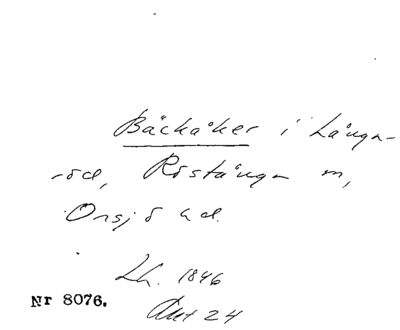 Bäckaker i Långa-
röd, Röstånga m,
Onsjö hd.
Lh. 1846
Nr 8076.
Akt 24